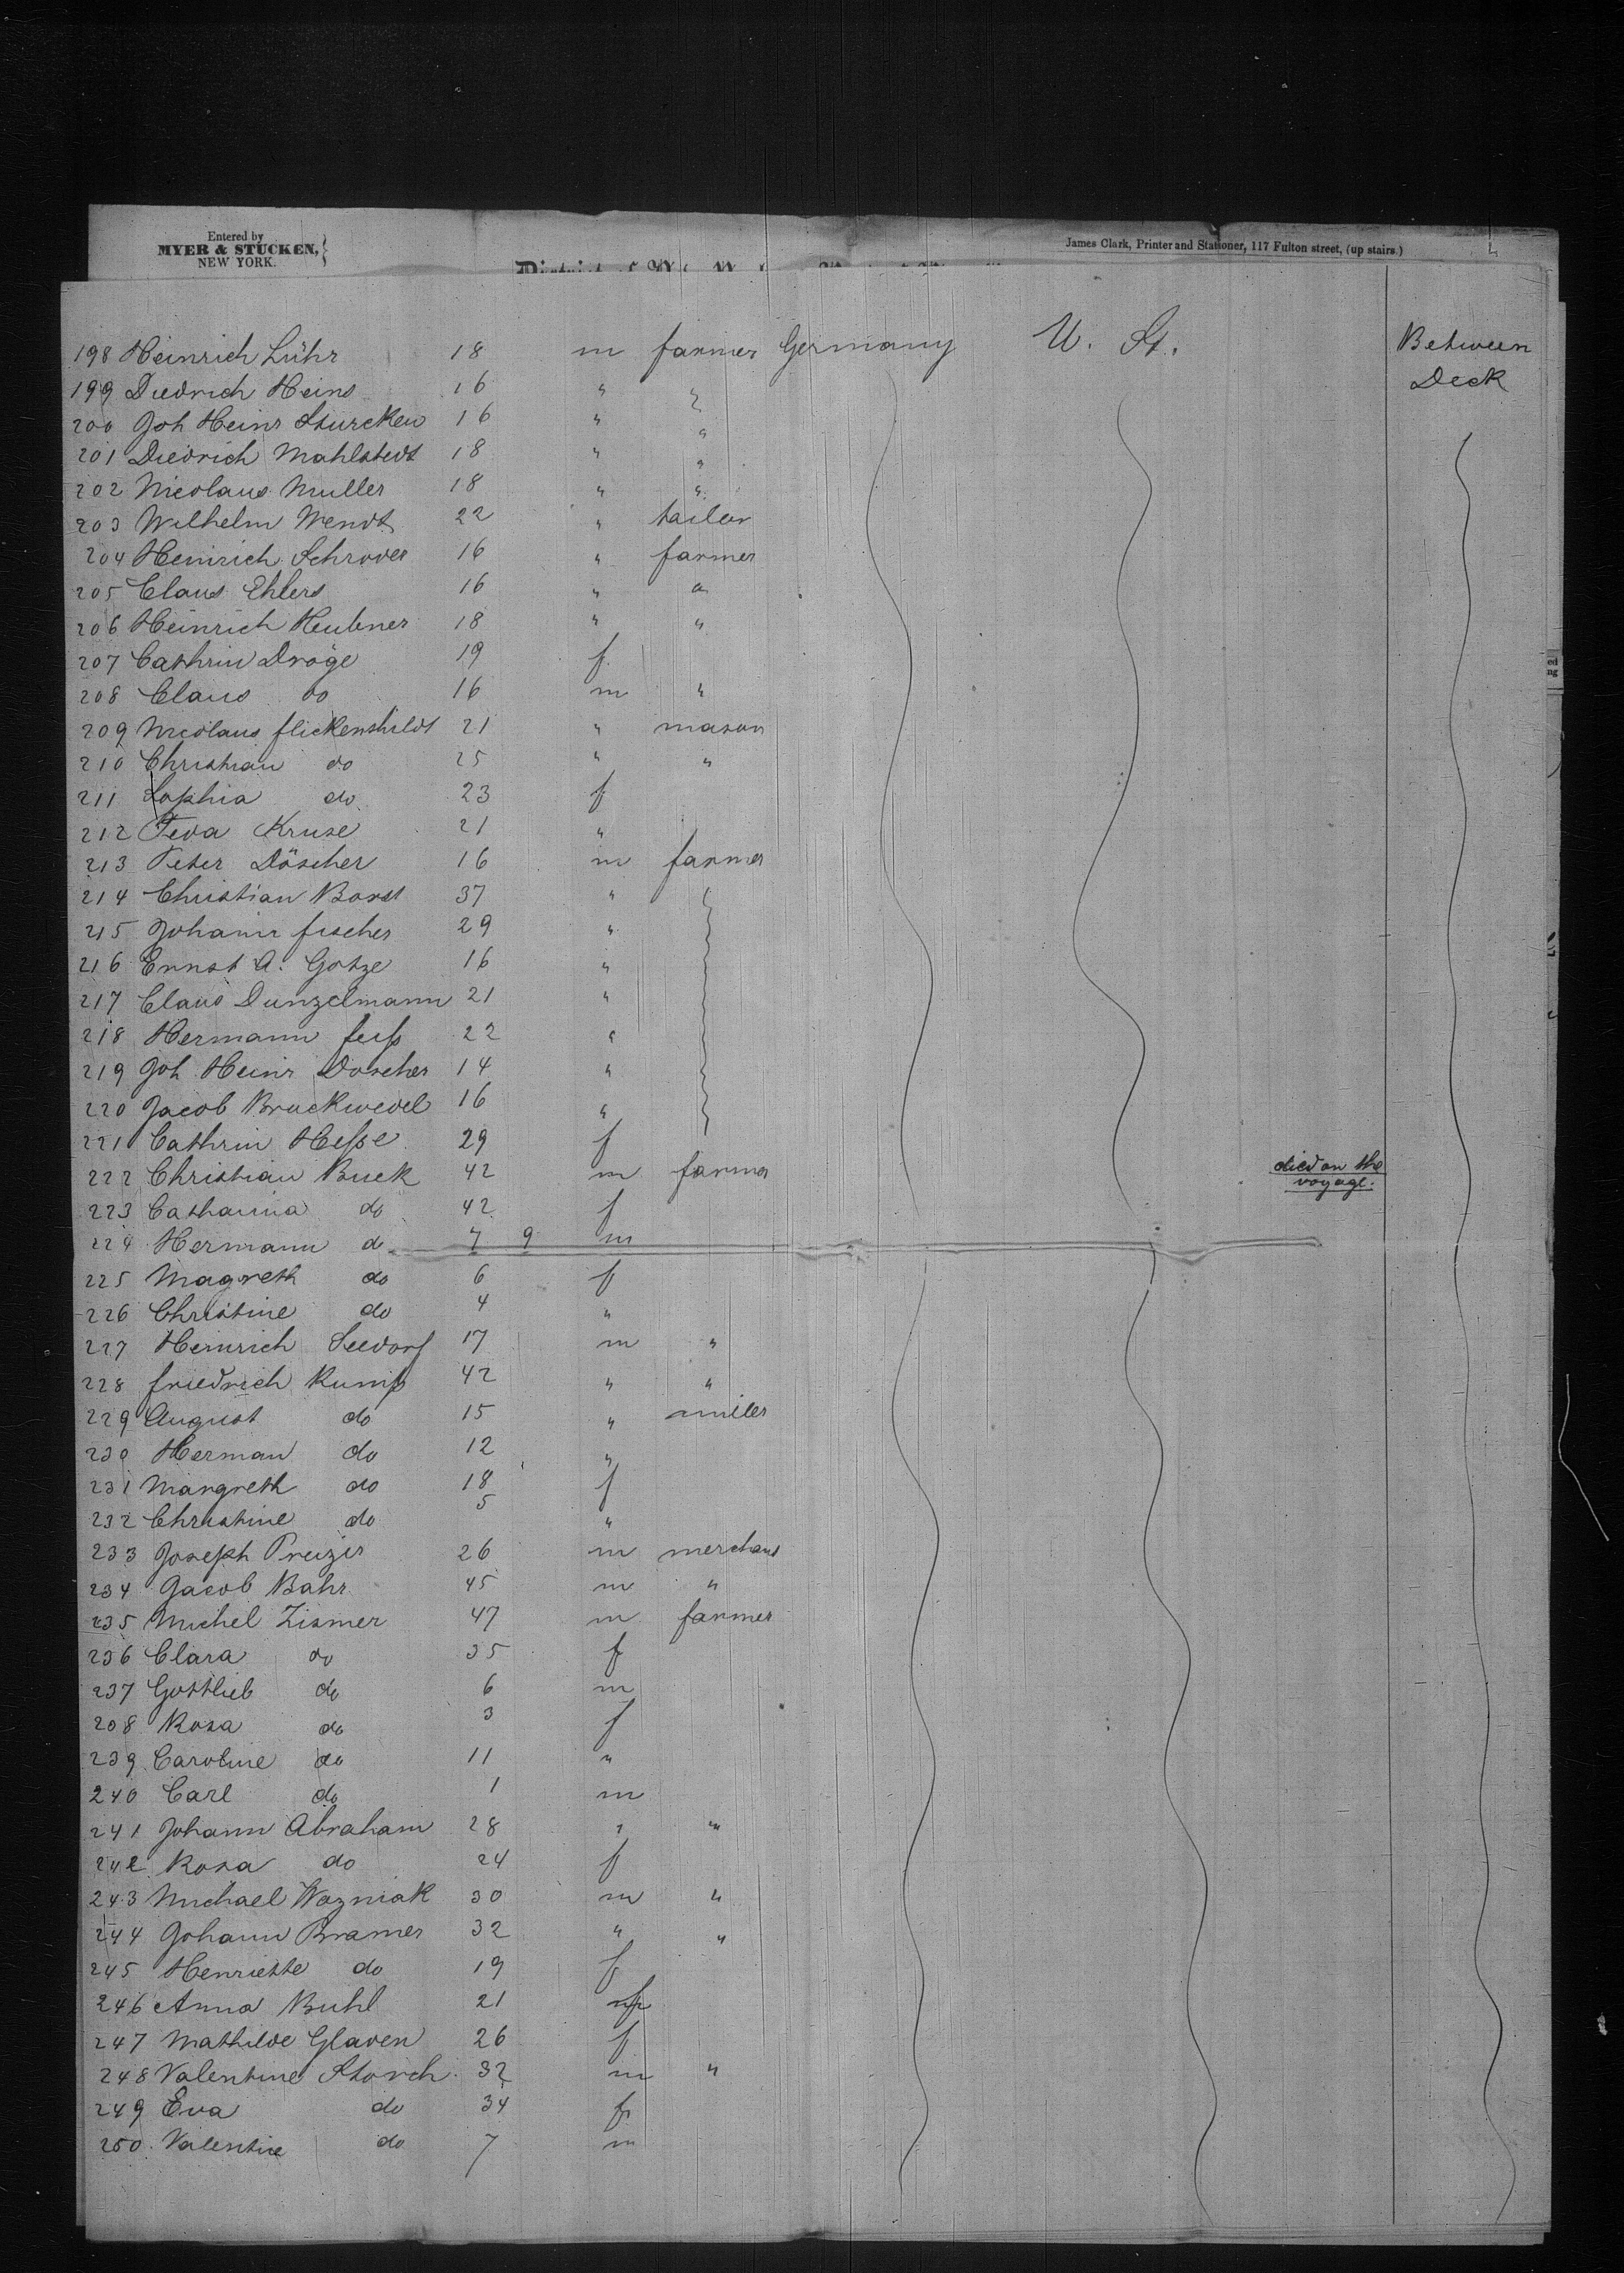 Entered by
MYER & STUCKEN,
NEW YORK.
James Clark, Printer and Stationer, 117 Fulton street, (up stairs.)
198 Heinrich Lühr 18 m farmer Germany U. St. Between
199 Diedrich Heins 16 " " Deck
200 Joh Heinr Sturcken 16 " "
201 Diedrich Mahlstedt 18 " "
202 Nicolaus Muller 18 " "
203 Wilhelm Wendt 22 " tailor
204 Heinrich Schroder 16 " farmer
205 Claus Ehlers 16 " "
206 Heinrich Heubner 18 " "
207 Cathrin Dröge 19 f
208 Claus do 16 m "
209 Nicolaus flickenshildt 21 " mason
210 Christian do 25 " "
211 Sophia do 23 f
212 Feda Kruse 21 "
213 Peter Döscher 16 m farmer
214 Christian Borst 37 "
215 Johann fischer 29 "
216 Ernst A. Gotze 16 "
217 Claus Dunzelmann 21 "
218 Hermann 22 "
219 Joh Heinr Doscher 14 "
220 Jacob Bruckwedel 16 "
221 Cathrin Heße 29 f
222 Christian Buck 42 m farmer died on the
voyage.
223 Catharina do 42 f
224 Hermann do 7 9 m
225 Magreth do 6 f
226 Christine do 4 "
227 Heinrich Seedorf 17 m "
228 friedrich Rumpf 42 " "
229 August do 15 " miller
230 Herman do 12 "
231 Margreth do 18 f
232 Christine do 5 "
233 Joseph Preizer 26 m merchant
234 Jacob Bahr 45 m "
235 Michel Zismer 47 m farmer
236 Clara do 35 f
237 Gottlieb do 6 m
208 Rosa do 3 f
239 Caroline do 11 "
240 Carl do 1 m
241 Johann Abraham 28 " "
242 Rosa do 24 f
243 Michael Wozniak 30 m "
244 Johann Bramer 32 " "
245 Henriette do 19 f
246 Anna Buhl 21 f
247 Mathilde Gladen 26 f
248 Valentine Storch 32 m "
249 Eva do 34 f
250 Valentine do 7 m